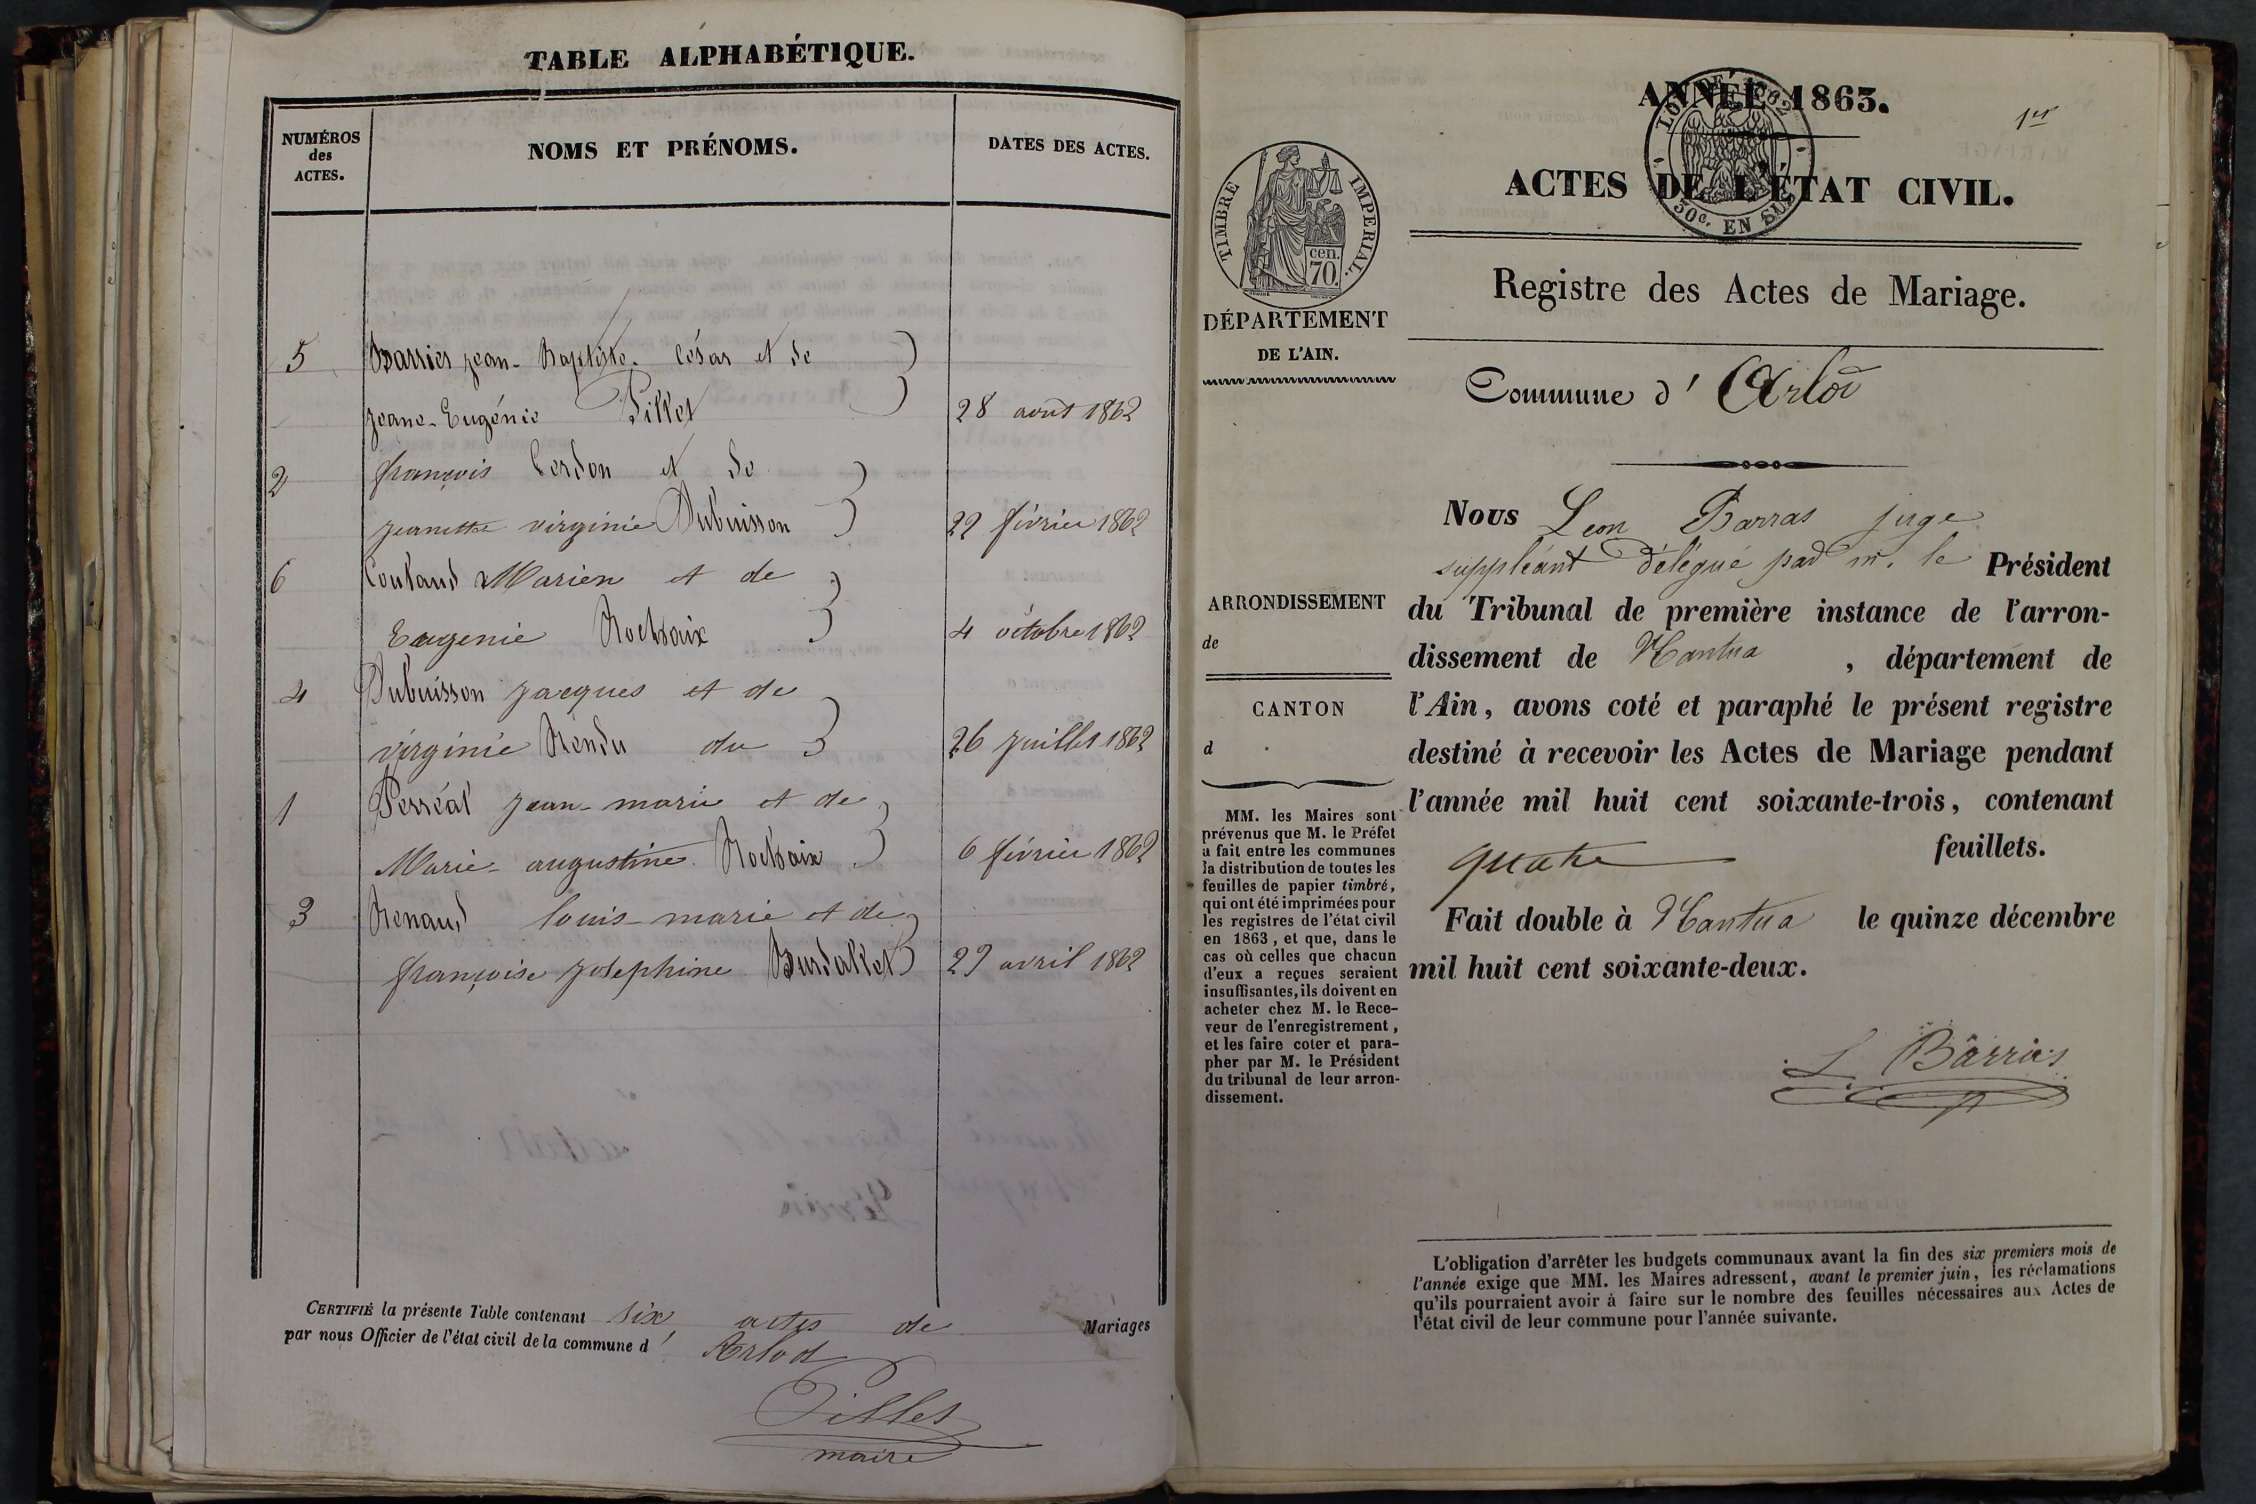 TABLE ALPHABÉTIQUE.
NUMÉROS
des
ACTES.
NOMS ET PRÉNOMS.
DATES DES ACTES.
5 Barrier jean-Baptiste César et de
jeane-Eugénie Pillet 28 août 1862
2 françois Cerdon et de
jeanette virginie Dubuisson 22 février 1862
6 Coutaud Marien et de
Eugenie Rochaix 4 octobre 1862
4 Dubuisson jacques et de
virginie Rendu du 26 juillet 1862
1 Perréal jean-marie et de
Marie-augustine Rochaix 6 février 1862
3 Renaud louis-marie et de
françoise josephine Burdallet 29 avril 1862
CERTIFIÉ la présente Table contenant six actes de Mariages
par nous Officier de l'état civil de la commune d' Arlod
Pillet
maire
ANNÉE 1863.
1er
LOI DE 1862
30c. EN SUS
ACTES DE L'ÉTAT CIVIL.
TIMBRE IMPERIAL.
cen.
70.
Registre des Actes de Mariage.
DÉPARTEMENT
DE L'AIN.
Commune d' Arlod
Nous Leon Barras juge
suppléant délégué par m. le Président
ARRONDISSEMENT
de
du Tribunal de première instance de l'arron-
dissement de Nantua, département de
CANTON
d
l'Ain, avons coté et paraphé le présent registre
destiné à recevoir les Actes de Mariage pendant
l'année mil huit cent soixante-trois, contenant
quatre feuillets.
Fait double à Nantua le quinze décembre
mil huit cent soixante-deux.
MM. les Maires sont
prévenus que M. le Préfet
a fait entre les communes
la distribution de toutes les
feuilles de papier timbré,
qui ont été imprimées pour
les registres de l'état civil
en 1863, et que, dans le
cas où celles que chacun
d'eux a reçues seraient
insuffisantes, ils doivent en
acheter chez M. le Rece-
veur de l'enregistrement,
et les faire coter et para-
pher par M. le Président
du tribunal de leur arron-
dissement.
L. Barras
L'obligation d'arrêter les budgets communaux avant la fin des six premiers mois de
l'année exige que MM. les Maires adressent, avant le premier juin, les réclamations
qu'ils pourraient avoir à faire sur le nombre des feuilles nécessaires aux Actes de
l'état civil de leur commune pour l'année suivante.